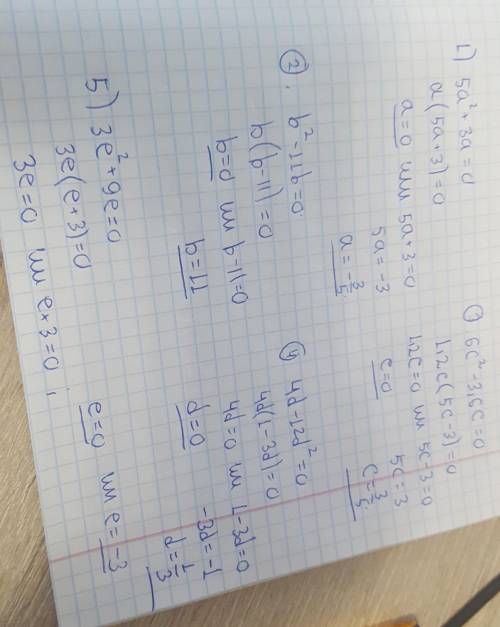 1) 5a² + 3a = 0
a(5a+3) = 0
a = 0 или 5a+3 = 0
5a = -3
a = -3/5
2) b² - 11b = 0
b(b-11) = 0
b = 0 или b-11 = 0
b = 11
3) 6c² - 3,6c = 0
1,2c(5c-3) = 0
1,2c = 0 или 5c-3 = 0
5c = 3
c = 0
c = 3/5
4) 4d - 12d² = 0
4d(1-3d) = 0
4d = 0 или 1-3d = 0
-3d = -1
d = 0
d = 1/3
5) 3e² + 9e = 0
3e(e+3) = 0
3e = 0 или e+3 = 0;
e = 0 или e = -3